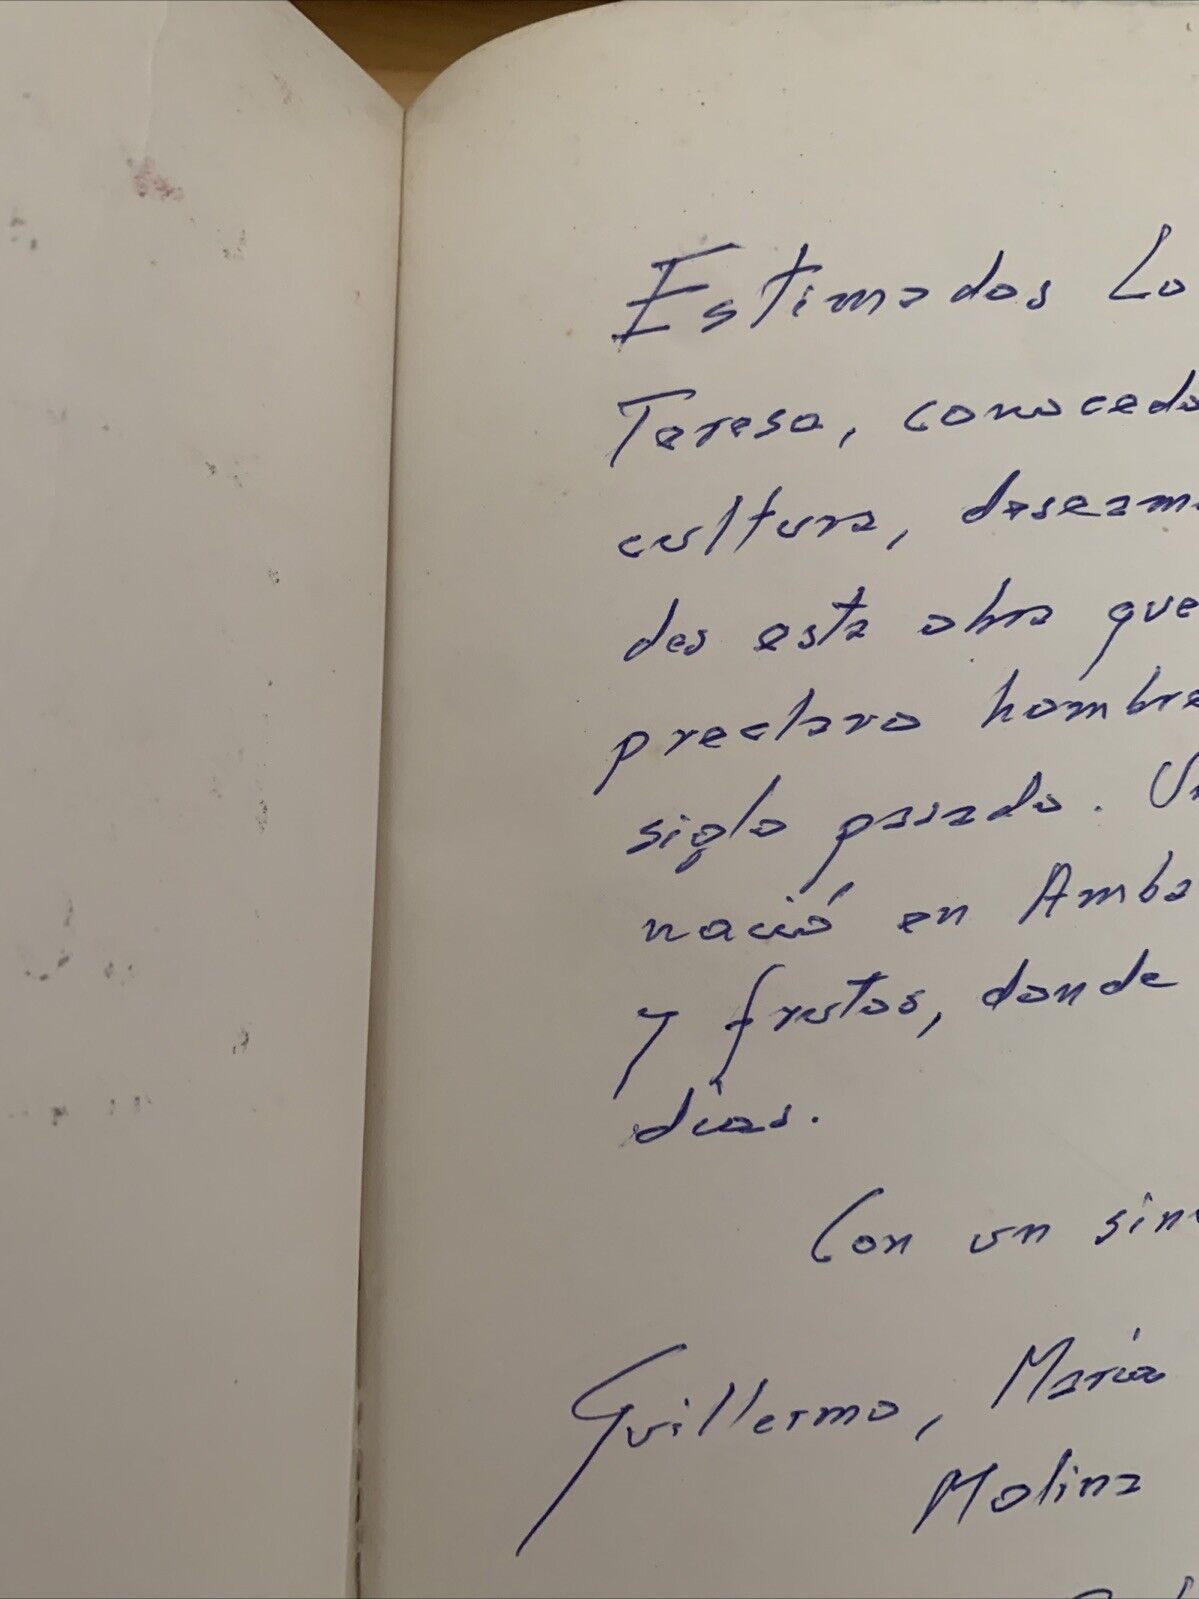 Estimados Lo
Teresa, conocedo
cultura, deseamo
des esta obra que
preclaro hombre
siglo pasado. Un
nació en Amba
y frutos, donde
días.
Con un sin
Guillermo, María
Molina